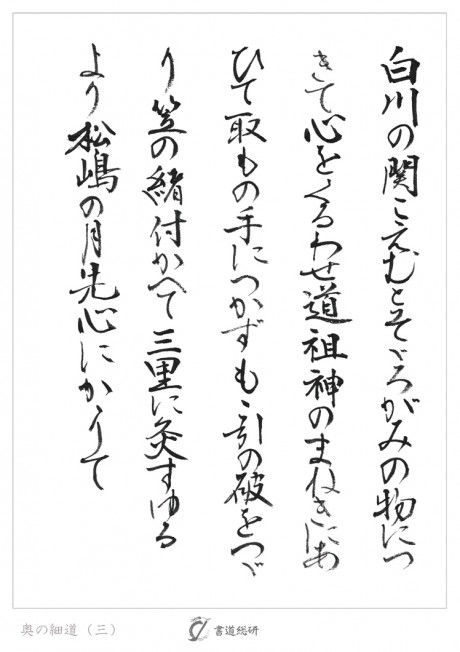 白川の関こえむとそゞろがみの物につ
きて心をくるわせ道祖神のまねきにあ
ひて取もの手につかずもゝ引の破をつゞ
り笠の緒付かへて三里に灸すゆる
より松嶋の月先心にかゝりて
奥の細道（三）
書道総研